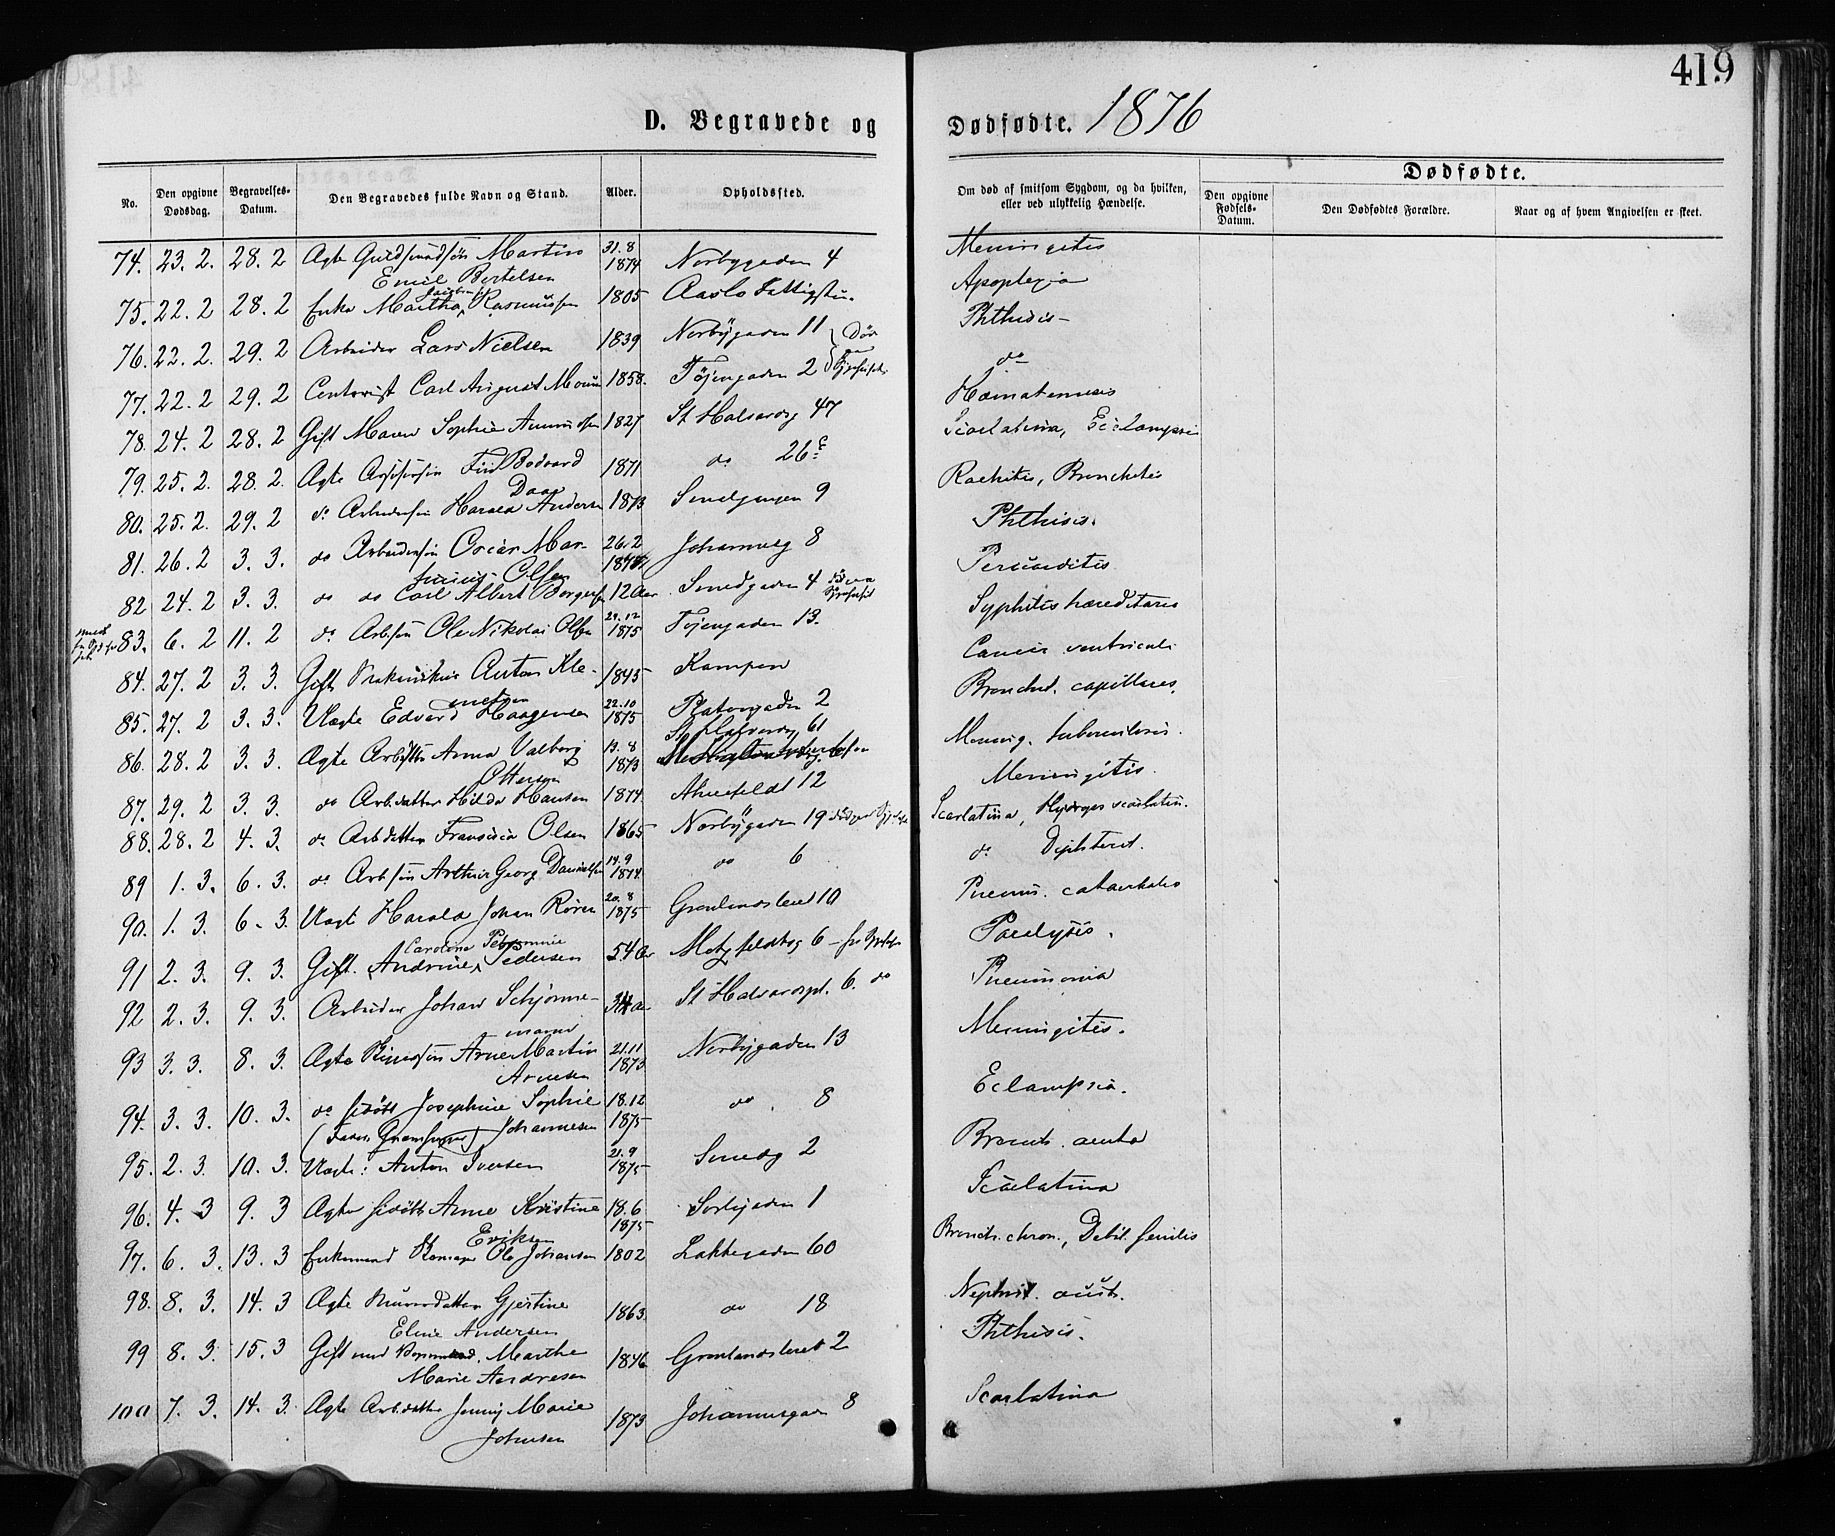 419
D. Begravede og Dødfødte. 1876
No.
Den opgivne Dødsdag.
Begravelses-Datum.
Den Begravedes fulde Navn og Stand.
Alder.
Opholdssted.
Om død af smitsom Sygdom, og da hvilken, eller ved ulykkelig Hændelse.
Dødfødte.
Den opgivne Fødsels-Datum.
Den Dødfødtes Forældre.
Naar og af hvem Angivelsen er skeet.
74. 23. 2. 28. 2 Martin 31. 8 1874 Norbygaden 4 Meningitis
Emil Bertelsen
75. 22. 2 28. 2 Enke Martha Rasmussen 1805 Apoplexia
76. 22. 2. 29. 2 Arbeider Lars Nielsen 1839 Norbygaden 11 Phthisis
77. 22. 2 29. 2 Carl August 1858. Tøjengaden 2 do
78. 24. 2 28. 2 Gift Maren Sophie 1827 St Halvardsg 47 Hæmatemesis
79. 25. 2. 28. 2. Agte 1871 do 26 Scarlatina, Eclampsi
80. 25. 2. 29. 2 do Arbeidersøn Harald Andersen 1873 Smalgangen 9 Rachitis, Bronchitis
81. 26. 2 3. 3. do Arbeidersøn Oscar Mar- 26. 2 Johannesg 8 Phthisis.
Olsen
82 24. 2 3. 3. do do Carl Albert Borgersen 12 Aar Smedgaden 4 Pericarditis
83. 6. 2 11. 2 do Arb.søn Ole Nikolai Olsen 29. 12 1875 Tøjengaden 13. Syphilis hæreditaria
84. 27. 2 3. 3. Gift Anton Kle- 1845 Kampen Cancer ventriculi
metsen
85. 27. 2 3. 3. Uægte Edvard Haagensen 22. 10 1875 Platougaden 2 Bronchit. capillaris.
86. 28. 2 3. 3. Agte Arb.dtt. Anna Valborg 13. 8 1873 St Halvardsg 61 Mening. tuberculosis.
Ottersen
87. 29. 2 3. 3. do Arb.datter Hilda Hansen 1874 Ahlefeldt 12 Meningitis.
88. 28. 2 4. 3. do Arb.datter Fransisca Olsen 1865 Norbygaden 19 Scarlatina, Hydrops scarlatin.
89 1. 3. 6. 3. do Arb.søn Arthur Georg Danielsen 19. 9 1874 do 6 do Diphterit.
90. 1. 3. 6. 3. Uægte Harald Johan 20. 8 1875 Grønlandsleret 10 Pneum. catarrhalis
Caroline Petromine
91 2. 3. 9. 3. Gift Andrine Pedersen 54 Aar Motzfeldtsg 6 Paralysis.
92 2. 3. 9. 3. Arbeider Johan Schjønne- St Halvardspl. 6. do Pneumonia
mann
93 3. 3. 8. 3. Agte Arne Martin 21. 11 1873 Norbygaden 13 Meningitis.
Arnesen
94. 3. 3. 10. 3. do Josephine Sophie 18. 12 1875 do 8 Eclampsia.
Johannesen
95. 2. 3. 10. 3. Uægte: Anton Iversen 21. 9 1875 Smedg 2 Bronch. acuta
96. 4. 3 9. 3 Agte Anne Kristine 18. 6 1875 Sorbygaden 1 Scarlatina
Eriksen
97. 6. 3. 13. 3 Enkemand Ole Johansen 1802 Lakkegaden 60 Bronch. chron., Debil. senilis
98. 8. 3. 14. 3 Agte Murerdatter Gjertine 1863 do 18 Nephrit. acut.
Eline Andersen
99 8. 3. 15. 3 Gift med Marthe 1846 Grønlandsleret 2 Phthisis.
Marie Andresen
100 7. 3. 14. 3. Agte Arb.datter Jenny Marie 1873 Johannesgaden 8 Scarlatina
Johnsen